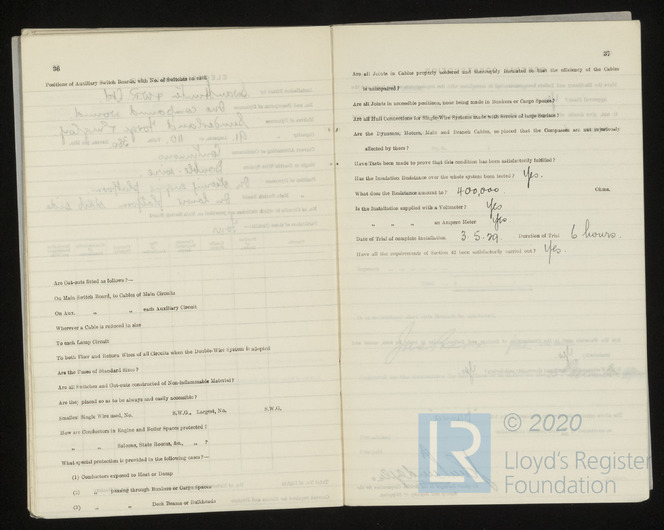 36
Positions of Auxiliary Switch Boards, with No. of Switches on each
Are Cut-outs fitted as follows?—
On Main Switch Board, to Cables of Main Circuits
On Aux. „ „ each Auxiliary Circuit
Wherever a Cable is reduced in size
To each Lamp Circuit
To both Flow and Return Wires of all Circuits when the Double-Wire System is adopted
Are the Fuses of Standard Sizes?
Are all Switches and Cut-outs constructed of Non-inflammable Material?
Are they placed so as to be always and easily accessible?
Smallest Single Wire used, No. S.W.G., Largest, No. S.W.G.
How are Conductors in Engine and Boiler Spaces protected?
„ „ Saloons, State Rooms, &c., „ ?
What special protection is provided in the following cases?—
(1) Conductors exposed to Heat or Damp
(2) „ passing through Bunkers or Cargo Spaces
(3) „ „ Deck Beams or Bulkheads
37
Are all Joints in Cables properly soldered and thoroughly insulated so that the efficiency of the Cables
is unimpaired?
Are all Joints in accessible positions, none being made in Bunkers or Cargo Spaces?
Are all Hull Connections for Single-Wire Systems made with Screws of large Surface?
Are the Dynamos, Motors, Main and Branch Cables, so placed that the Compasses are not injuriously
affected by them?
Have Tests been made to prove that this condition has been satisfactorily fulfilled?
Has the Insulation Resistance over the whole system been tested? Yes.
What does the Resistance amount to? 400,000. Ohms.
Is the Installation supplied with a Voltmeter? Yes
„ „ „ an Ampere Meter Yes
Date of Trial of complete Installation 3.5.29. Duration of Trial 6 hours.
Have all the requirements of Section 42 been satisfactorily carried out? Yes.
LR
© 2020
Lloyd's Register
Foundation